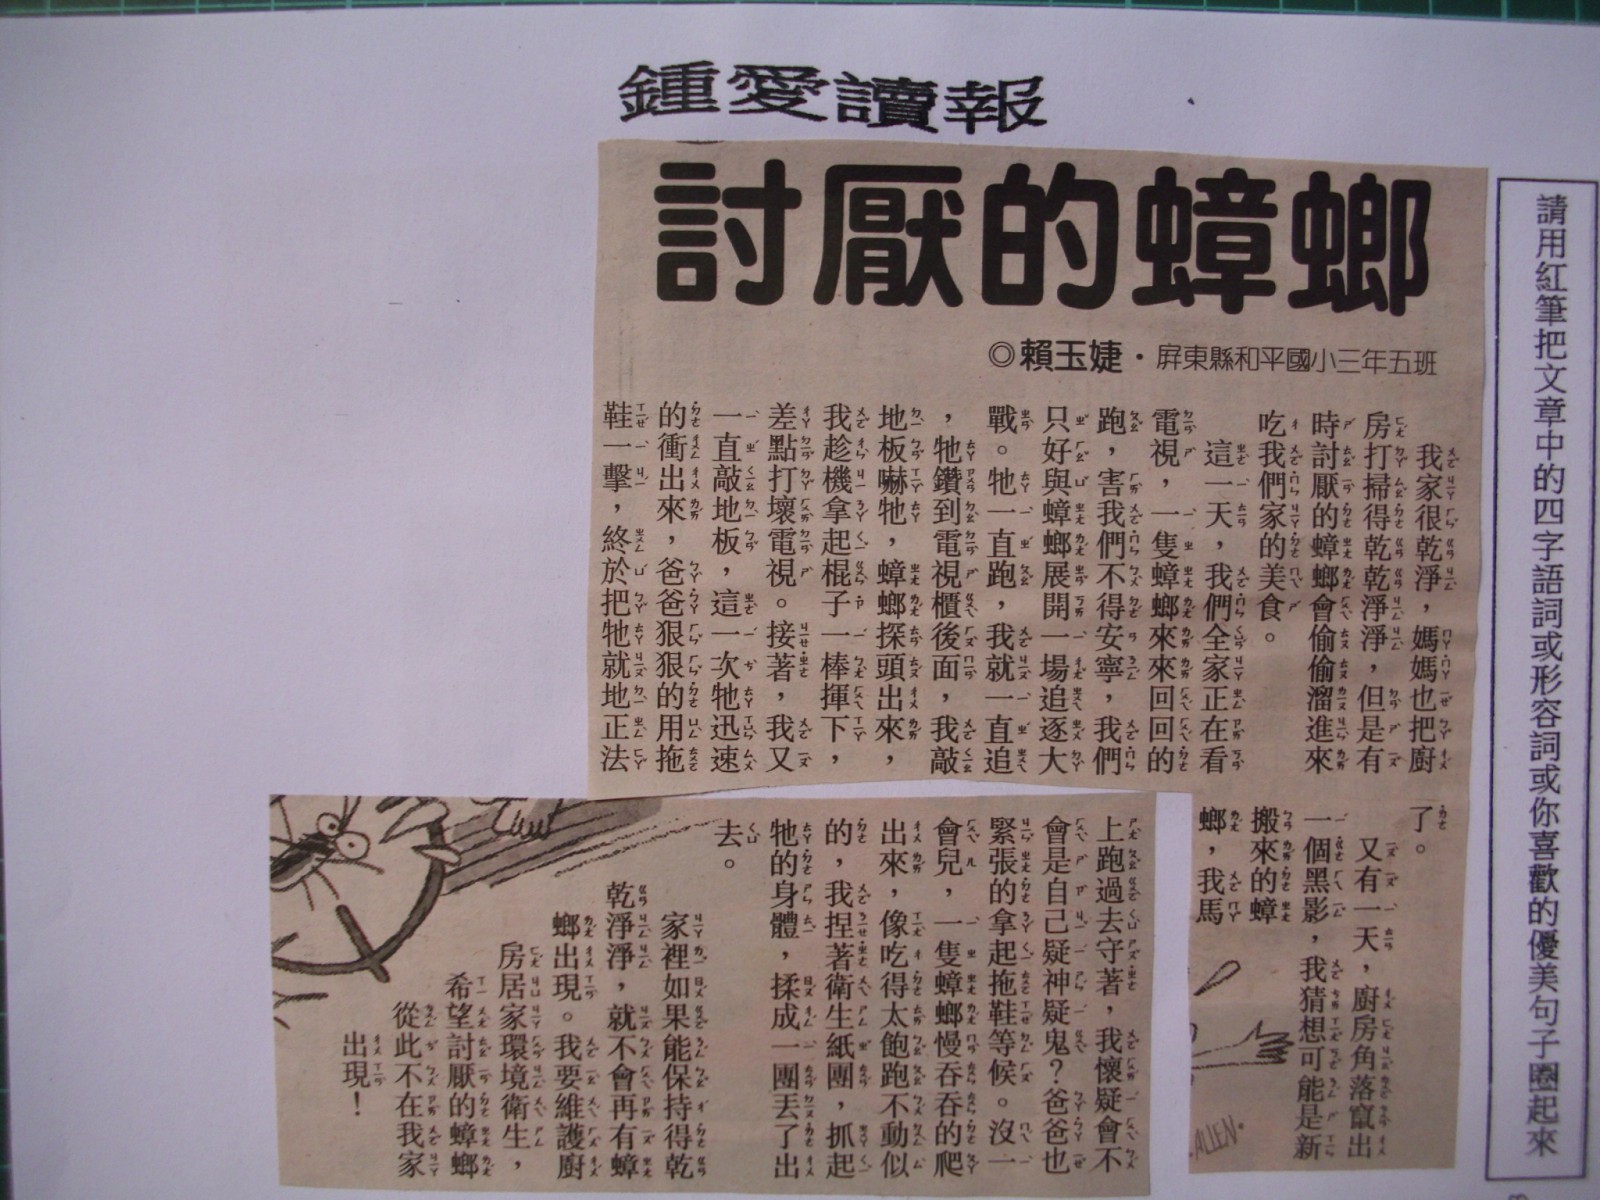 鍾愛讀報
請用紅筆把文章中的四字語詞或形容詞或你喜歡的優美句子圈起來
討厭的蟑螂
◎賴玉婕・屏東縣和平國小三年五班
我家很乾淨，媽媽也把廚
房打掃得乾乾淨淨，但是有
時討厭的蟑螂會偷偷溜進來
吃我們家的美食。
這一天，我們全家正在看
電視，一隻蟑螂來來回回的
跑，害我們不得安寧，我們
只好與蟑螂展開一場追逐大
戰。牠一直跑，我就一直追
，牠鑽到電視櫃後面，我敲
地板嚇牠，蟑螂探頭出來，
我趁機拿起棍子一棒揮下，
差點打壞電視。接著，我又
一直敲地板，這一次牠迅速
的衝出來，爸爸狠狠的用拖
鞋一擊，終於把牠就地正法
了。
又有一天，廚房角落竄出
一個黑影，我猜想可能是新
搬來的蟑
螂，我馬
上跑過去守著，我懷疑會不
會是自己疑神疑鬼？爸爸也
緊張的拿起拖鞋等候。沒一
會兒，一隻蟑螂慢吞吞的爬
出來，像吃得太飽跑不動似
的，我捏著衛生紙團，抓起
牠的身體，揉成一團丟了出
去。
家裡如果能保持得乾
乾淨淨，就不會再有蟑
螂出現。我要維護廚
房居家環境衛生，
希望討厭的蟑螂
從此不在我家
出現！
ALLEN.